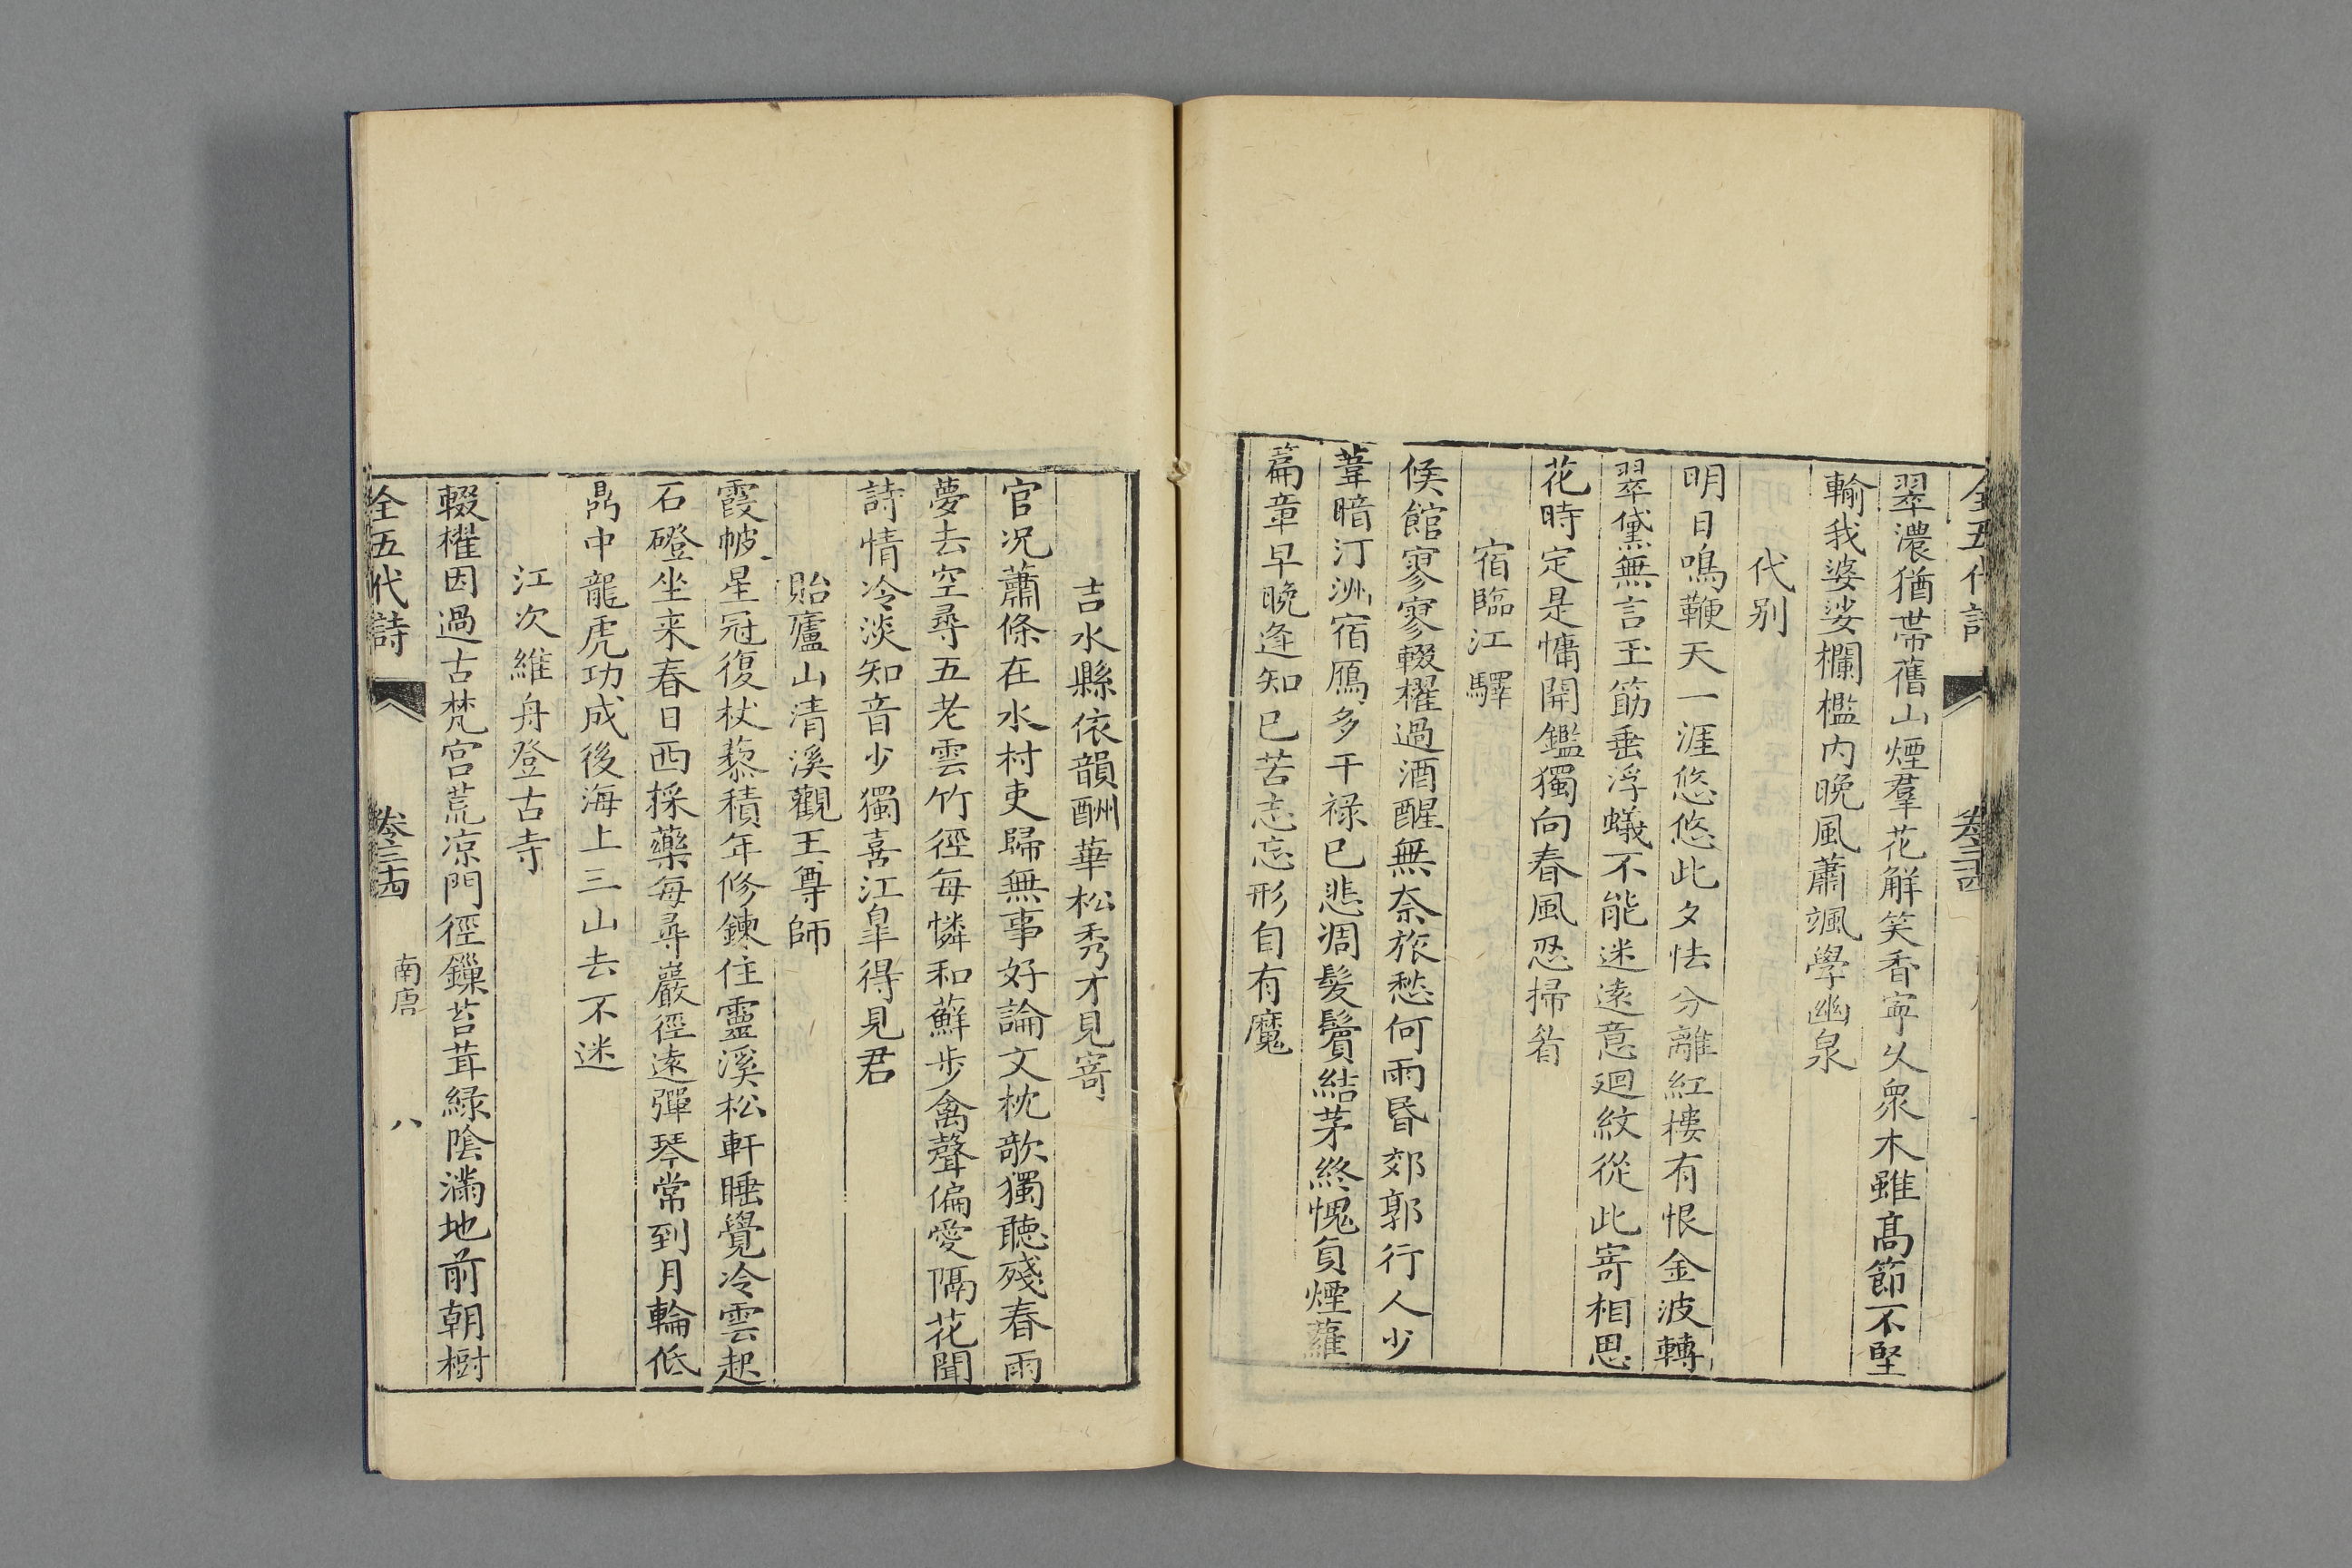 全五代詩 卷三十四
翠濃猶帶舊山煙羣花解笑香寧久衆木雖高節不堅
輸我婆娑欄檻内晚風蕭颯學幽泉
代别
明日鳴鞭天一涯悠悠此夕怯分離紅樓有恨金波轉
翠黛無言玉筯垂浮蟻不能迷遠意迴紋從此寄相思
花時定是慵開鑑獨向春風忍掃眉
宿臨江驛
候館寥寥輟櫂過酒醒無奈旅愁何雨昏郊郭行人少
葦暗汀洲宿鴈多干禄已悲凋髮鬢結茅終愧負煙蘿
篇章早晚逢知已苦志忘形自有魔
吉水縣依韻酬華松秀才見寄
官况蕭條在水村吏歸無事好論文枕欹獨聽殘春雨
夢去空尋五老雲竹徑每憐和蘚步禽聲偏愛隔花聞
詩情冷淡知音少獨喜江臯得見君
貽廬山清溪觀王尊師
霞帔星冠復杖藜積年修鍊住靈溪松軒睡覺冷雲起
石磴坐来春日西採藥每尋巖徑遠彈琴常到月輪低
鼎中龍虎功成後海上三山去不迷
江次維舟登古寺
輟櫂因過古梵宫荒凉門徑鏁苔茸緑陰滿地前朝樹
全五代詩 卷三十四 南唐 八